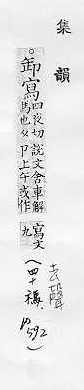 集韻
卸寫四夜切說文舍車解
馬也或从卩上午或作
寫文
九
(四十禡、
去聲
p592)